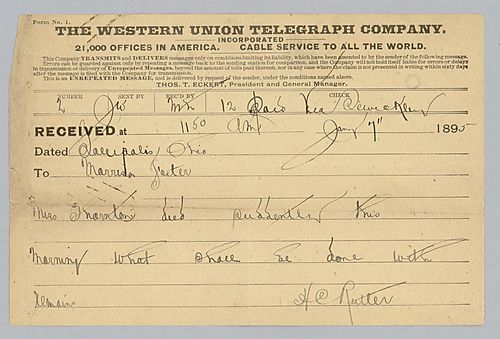 Form No. 1.
THE WESTERN UNION TELEGRAPH COMPANY.
INCORPORATED
21,000 OFFICES IN AMERICA. CABLE SERVICE TO ALL THE WORLD.
This Company TRANSMITS and DELIVERS messages only on conditions limiting its liability, which have been assented to by the sender of the following message.
Errors can be guarded against only by repeating a message back to the sending station for comparison, and the Company will not hold itself liable for errors or delays
in transmission or delivery of Unrepeated Messages, beyond the amount of tolls paid thereon, nor in any case where the claim is not presented in writing within sixty days
after the message is filed with the Company for transmission.
This is an UNREPEATED MESSAGE, and is delivered by request of the sender, under the conditions named above.
THOS. T. ECKERT, President and General Manager.
NUMBER SENT BY REC'D BY CHECK
2 12 Paid Via
RECEIVED at 1150 AM Jany 7" 1895
Dated Gallipolis Ohio
To Harrison Foster
Mrs. Thornton died suddenly this
Morning What shall be done with
Remains H C Rutter